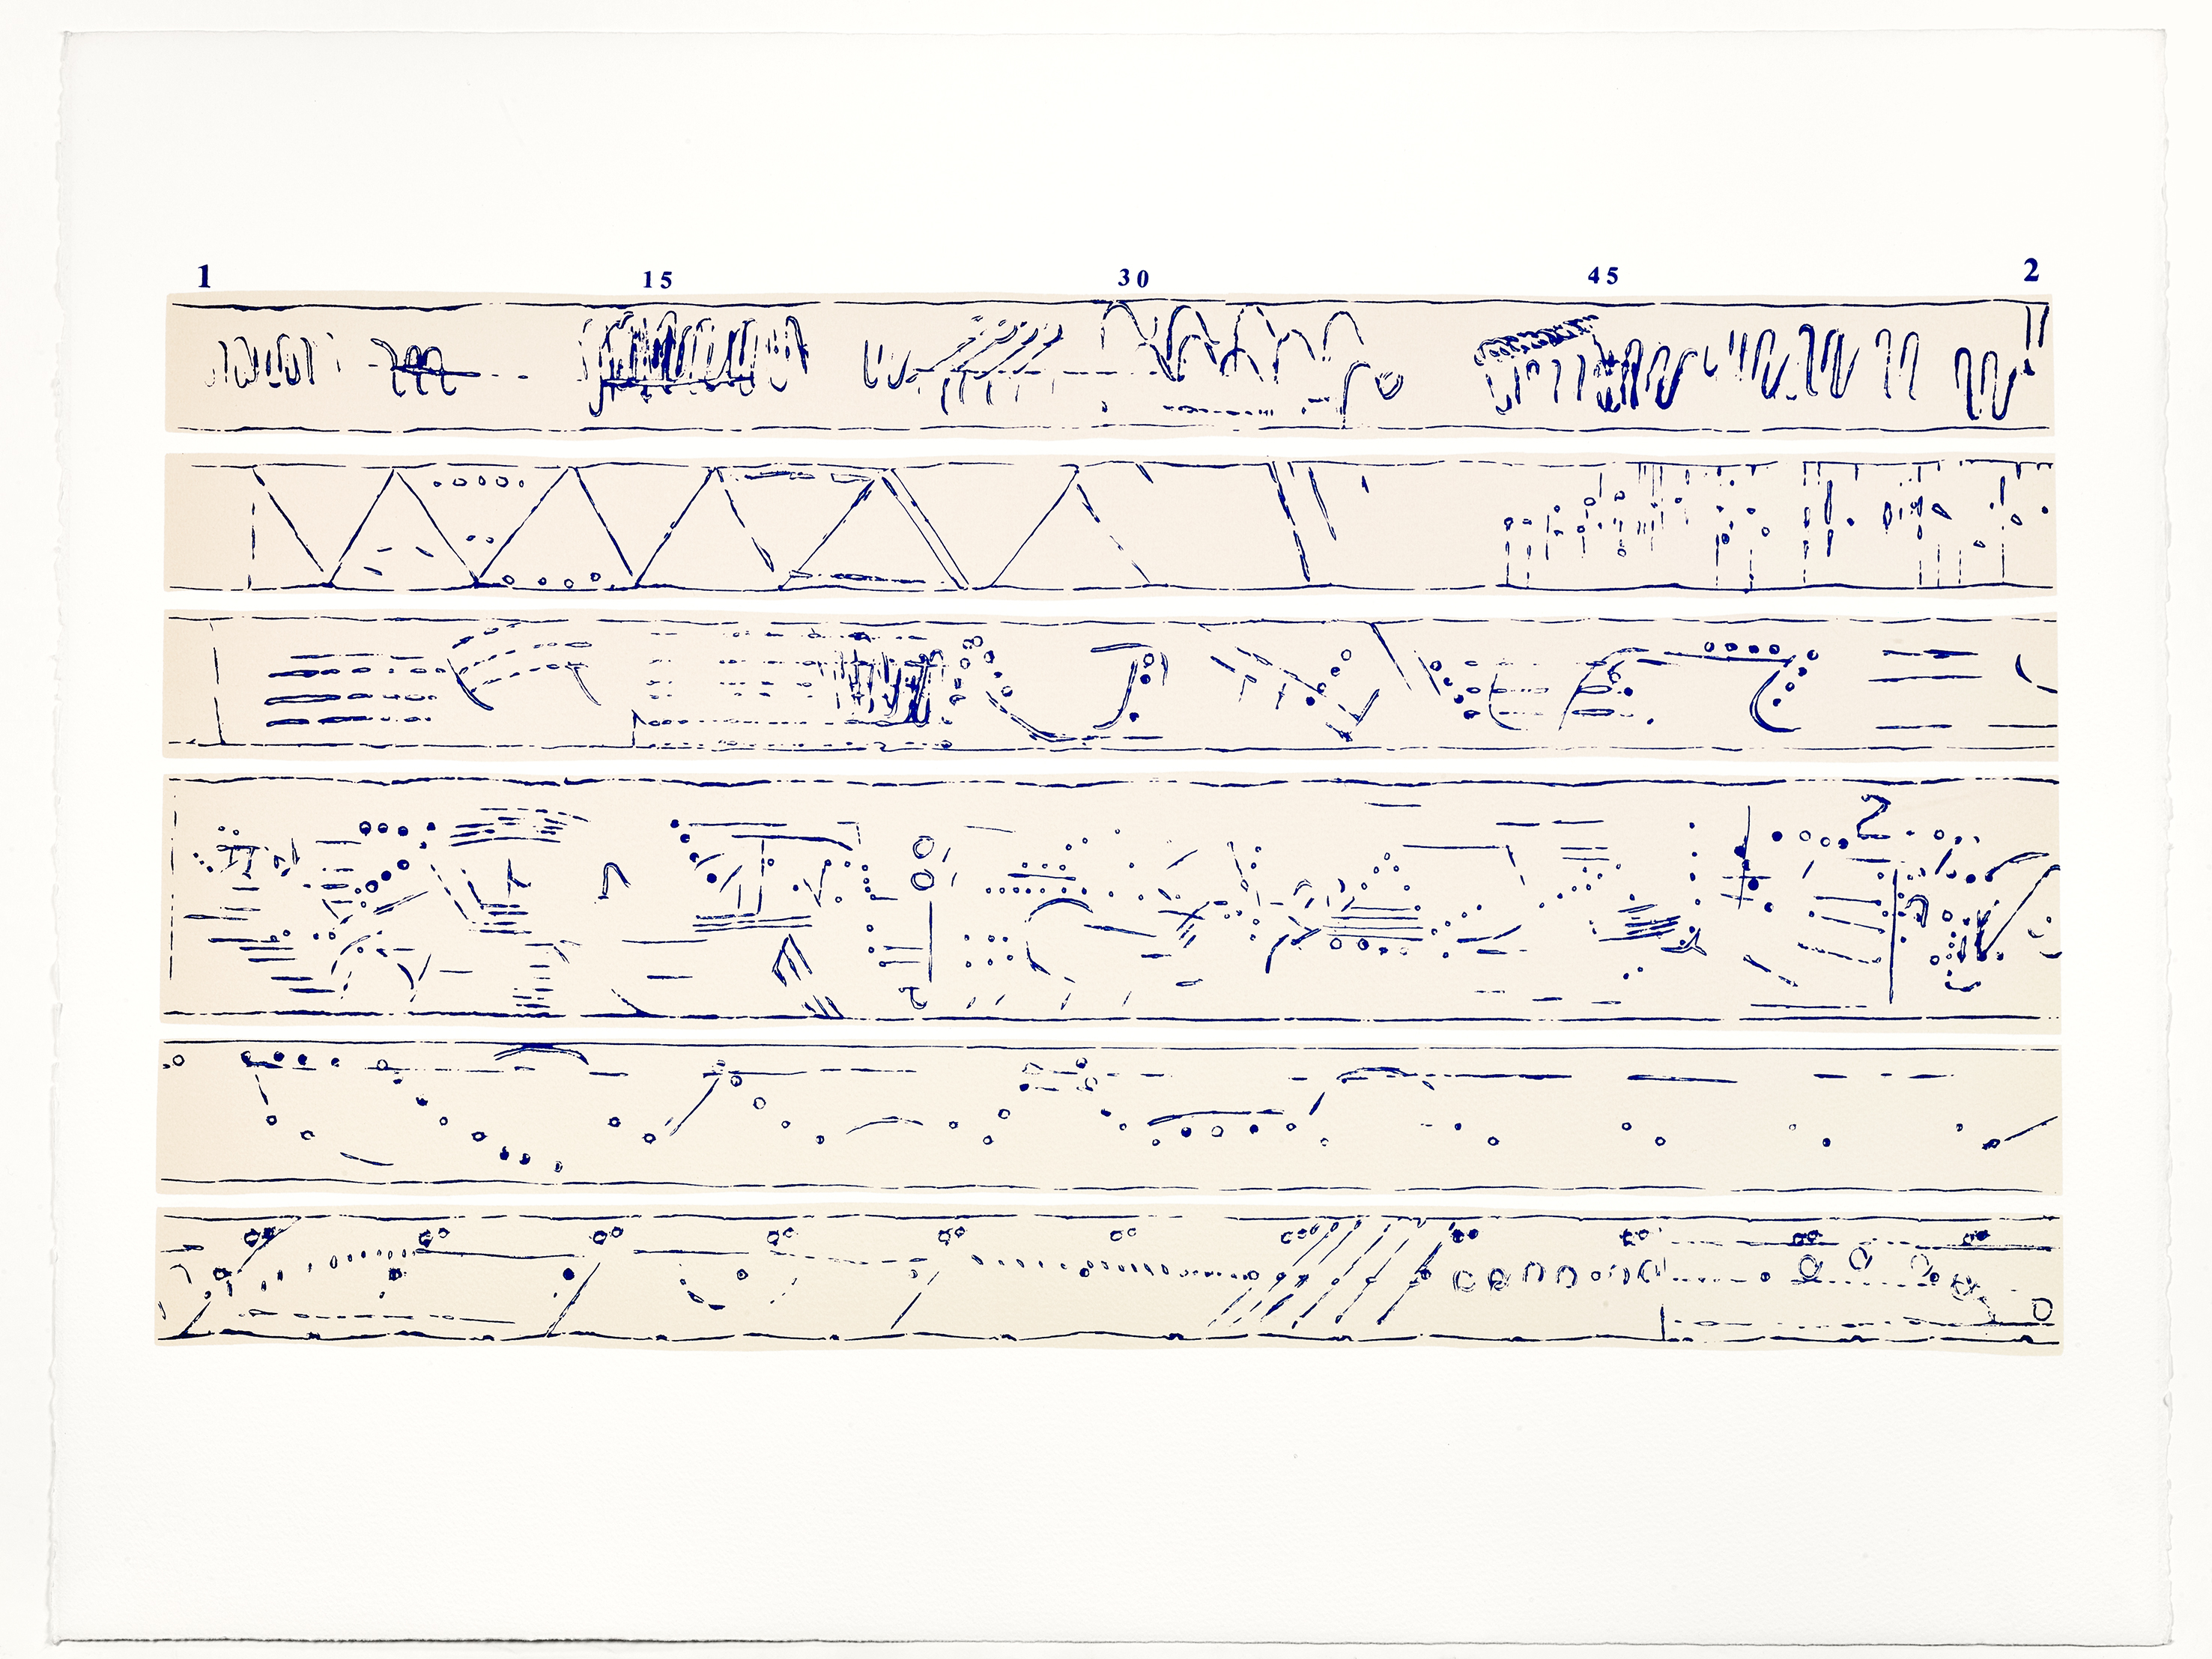 1 15 30 45 2